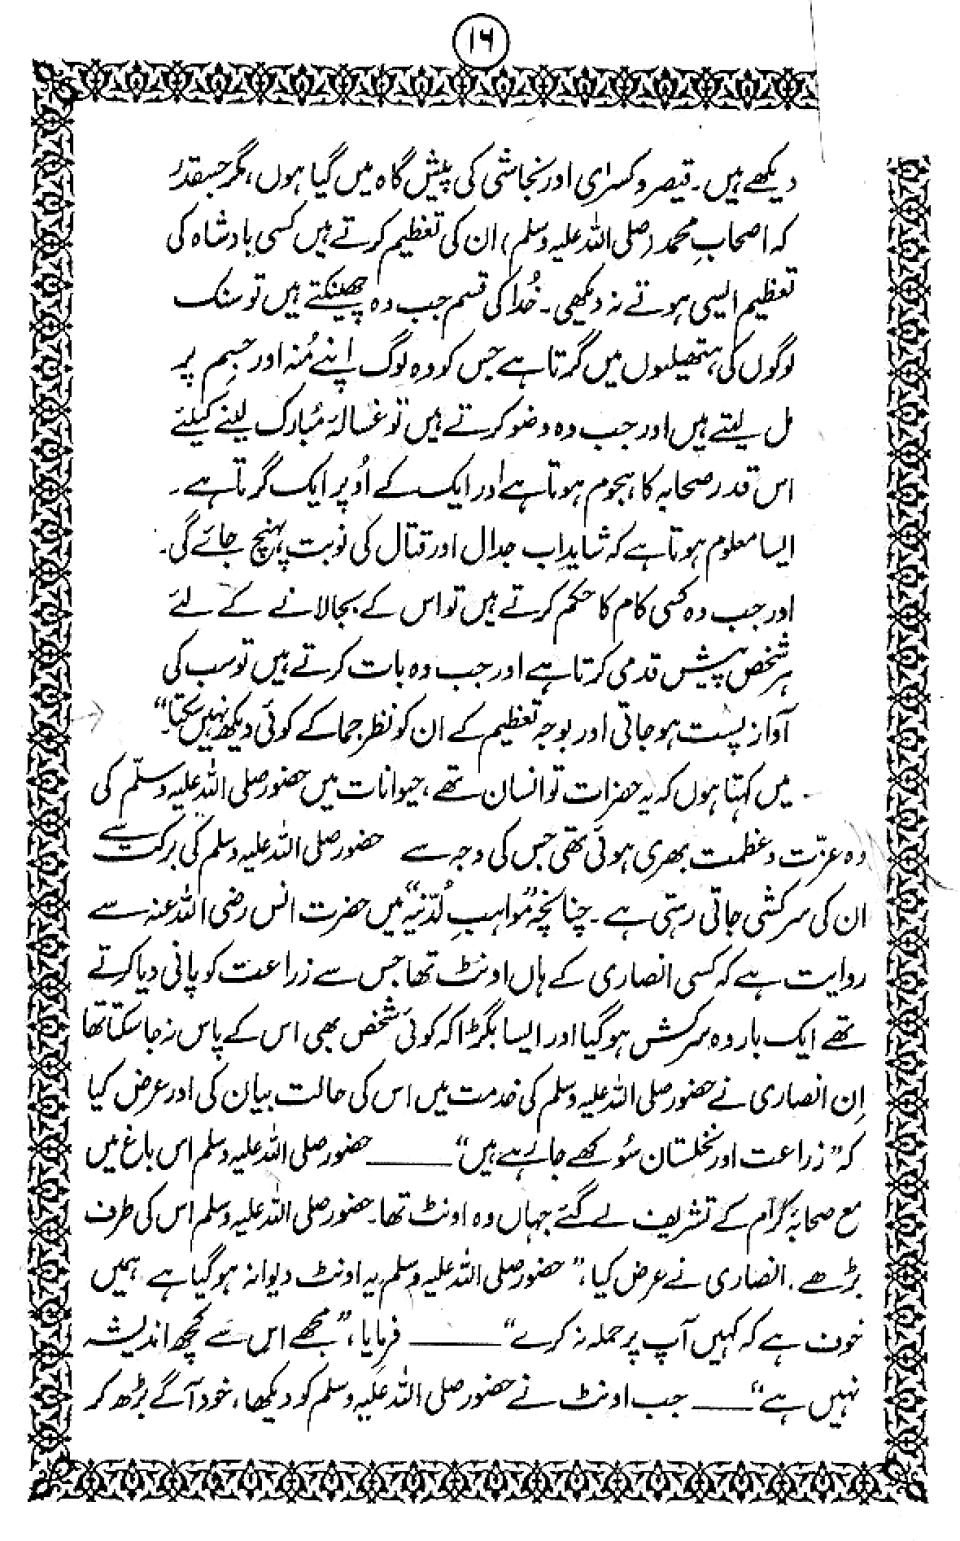 ۱۶
دیکھے ہیں۔ قیصر و کسرٰی اور نجاشی کی پیش گاہ میں گیا ہوں، مگر جسقدر
کہ اصحابِ محمد (صلی اللہ علیہ وسلم) ان کی تعظیم کرتے ہیں کسی بادشاہ کی
تعظیم ایسی ہوتے نہ دیکھی۔ خُدا کی قسم جب وہ چھینکتے ہیں تو سنک
لوگوں کی ہتھیلیوں میں گرتا ہے جس کو وہ لوگ اپنے مُنہ اور جسم پر
مل لیتے ہیں اور جب وہ وضو کرتے ہیں تو غسالۂ مُبارک لینے کیلئے
اس قدر صحابہ کا ہجوم ہوتا ہے اور ایک کے اُوپر ایک گرتا ہے۔
ایسا معلوم ہوتا ہے کہ شاید اب جدال اور قتال کی نوبت پہنچ جائے گی۔
اور جب وہ کسی کام کا حکم کرتے ہیں تو اس کے بجا لانے کے لئے
ہر شخص پیش قدمی کرتا ہے اور جب وہ بات کرتے ہیں تو سب کی
آواز پست ہو جاتی اور بوجہ تعظیم کے ان کو نظر جما کے کوئی دیکھ نہیں سکتا۔“
میں کہتا ہوں کہ یہ حضرات تو انسان تھے، حیوانات میں حضور صلی اللہ علیہ وسلم کی
وہ عزّت و عظمت بھری ہوئی تھی جس کی وجہ سے حضور صلی اللہ علیہ وسلم کی برکت سے
ان کی سرکشی جاتی رہتی ہے۔ چنانچہ ”مواہبِ لُدّنیہ“ میں حضرت انس رضی اللہ عنہ سے
روایت ہے کہ کسی انصاری کے ہاں اونٹ تھا جس سے زراعت کو پانی دیا کرتے
تھے ایک بار وہ سرکش ہو گیا اور ایسا بگڑا کہ کوئی شخص بھی اس کے پاس نہ جا سکتا تھا
اِن انصاری نے حضور صلی اللہ علیہ وسلم کی خدمت میں اس کی حالت بیان کی اور عرض کیا
کہ ”زراعت اور نخلستان سُوکھے جا رہے ہیں“ ــــــــ حضور صلی اللہ علیہ وسلم اس باغ میں
مع صحابہ کرام کے تشریف لے گئے جہاں وہ اونٹ تھا۔ حضور صلی اللہ علیہ وسلم اس کی طرف
بڑھے۔ انصاری نے عرض کیا، ”حضور صلی اللہ علیہ وسلم یہ اونٹ دیوانہ ہو گیا ہے ہمیں
خون ہے کہ کہیں آپ پر حملہ نہ کرے“ ــــــــ فرمایا، ”مجھے اس سے کچھ اندیشہ
نہیں ہے“ ــــــــ جب اونٹ نے حضور صلی اللہ علیہ وسلم کو دیکھا، خود آگے بڑھ کر